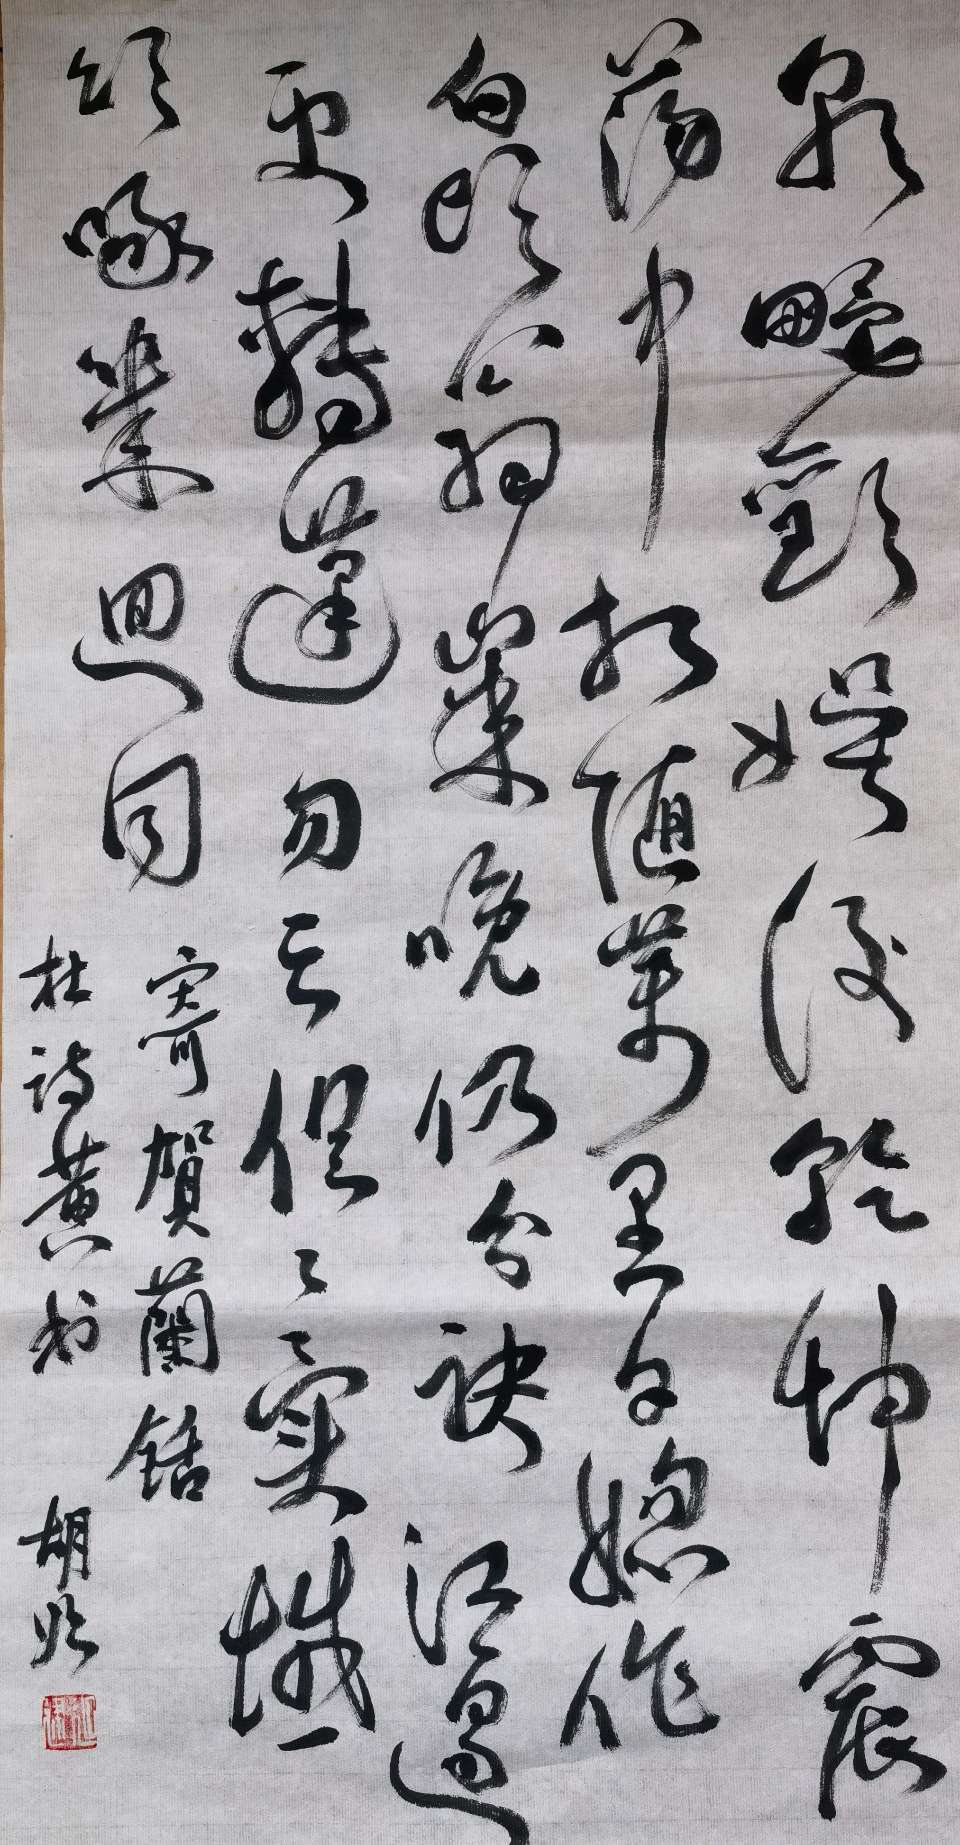 朝野歡娛後乾坤震
蕩中相隨萬里日總作
白頭翁歲晚仍分袂江邊
更轉蓬勿云俱域
飲啄幾迴同
寄賀蘭銛
杜詩黃书 胡